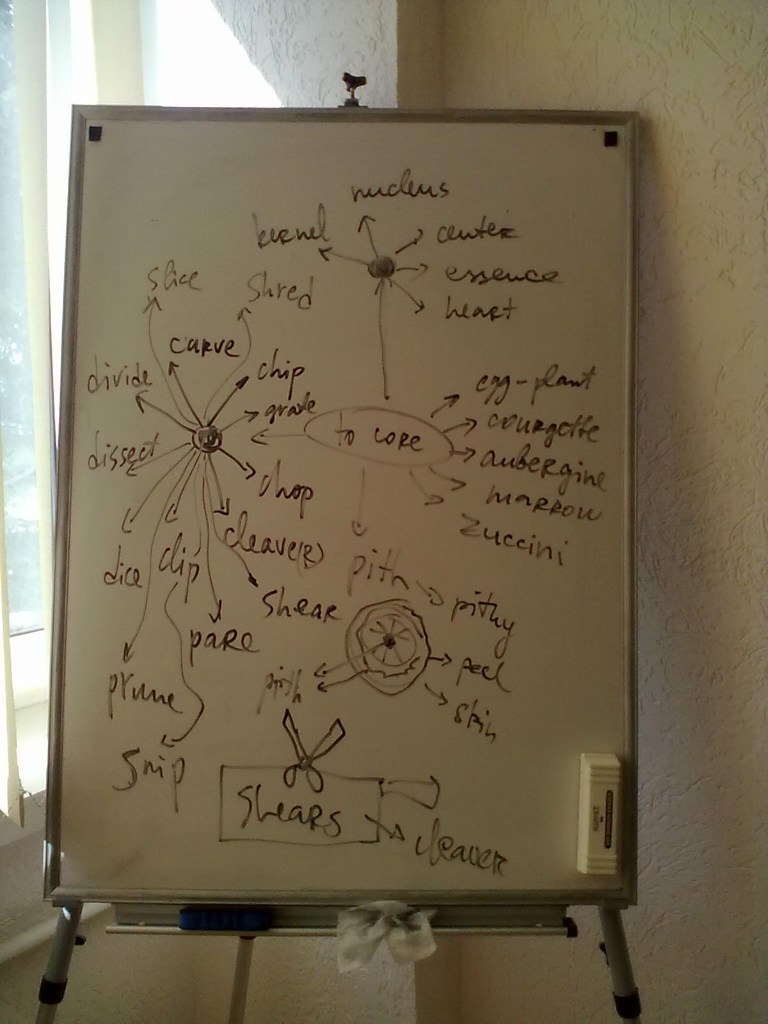 nucleus
kernel
center
essence
heart
slice
shred
carve
divide
chip
grate
dissect
chop
to core
egg-plant
courgette
aubergine
marrow
zuccini
dice
clip
cleave(R)
shear
pare
prune
snip
pith
pithy
peel
skin
pith
shears
cleaver